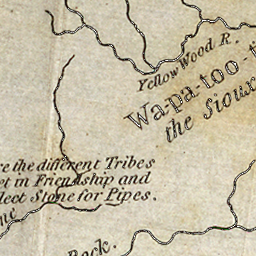 Yellow Wood R.
Wa-pa-too-t
the Sioux
re the different Tribes
et in Friendship and
llect Stone for Pipes.
Rock.